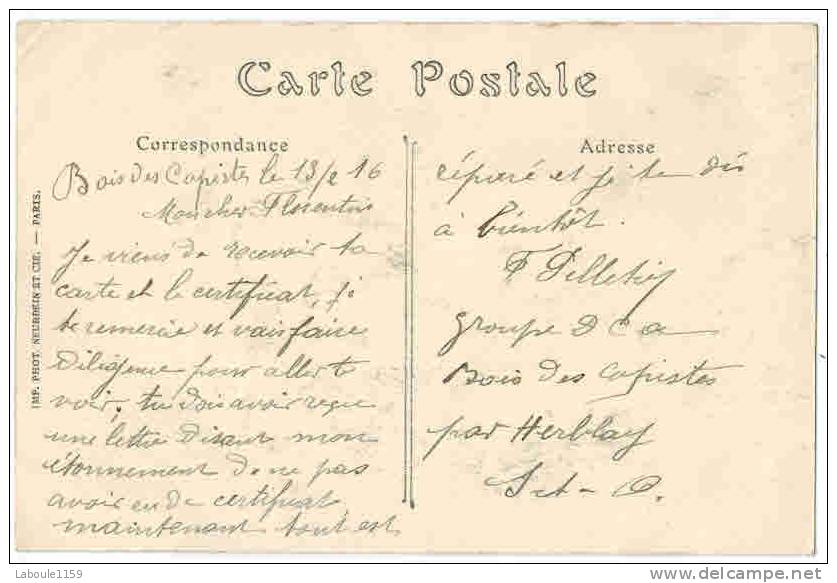 Carte Postale
Correspondance
Bois des Copistes le 13/2 16
Mon cher Florentin
Je viens de recevoir ta
carte et le certificat, je
te remercie et vais faire
diligence pour aller te
voir, tu dois avoir reçu
une lettre disant mon
étonnement de ne pas
avoir eu de certificat,
maintenant tout est
Adresse
réparé et je te dis
à bientôt.
F Pelletier
groupe D C a
Bois des Copistes
par Herblay
S et - O.
IMP. PHOT. NEURDEIN ET CIE. — PARIS.
Laboule1159
delcampe.net